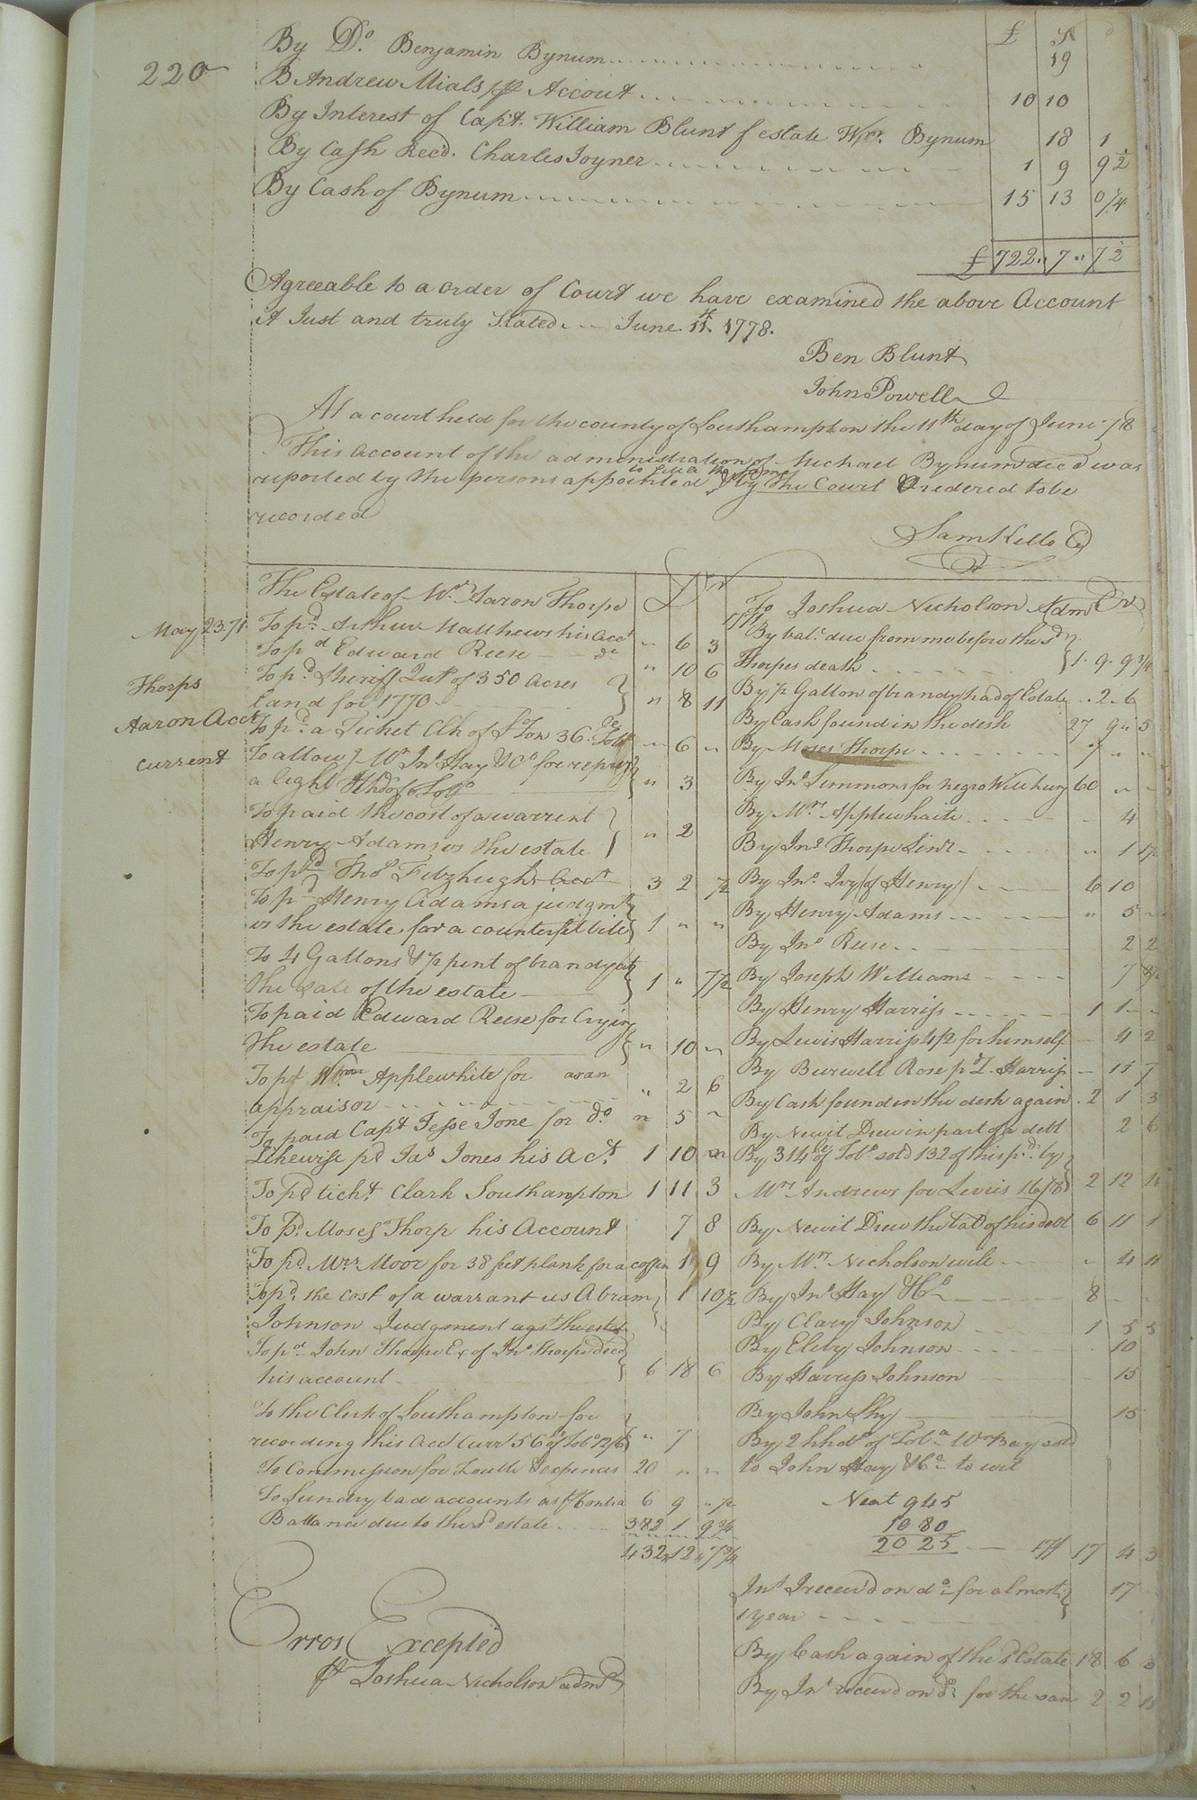 220
£ S d
By Do. Benjamin Bynum 19
B Andrew Mials pr Accout 10 10
By Interest of Capt. William Blunt f estate Wm. Bynum 18 1
By Cash Recd. Charles Joyner 1 9 9½
By Cash of Bynum 15 13 0¼
£ 722 " 7 " 7½
Agreeable to a order of Court we have examined the above Account
& Just and truly Stated. June. 11th. 1778.
Ben Blunt
John Powell
At a court held for the county of Southampton the 11th day of June 78
This Account of the administration of Michael Bynum decd was
to the same
reported by the persons appointed by the Court & Ordered to be
recorded
Sam Kello C
May 23. 71
Thorps
Aaron Acct
current
The Estate of Mr Aaron Thorpe £
To pd. Arthur Matthews his acct " 6 3
To pd Edward Reese do " 10 6
To pd Sheriff Quts of 350 Acres
land for 1770 " 8 11
To pd. a Ticket Clk of 36 Tobo " 6 "
To allow Mr Jno Hay & Co for
a light Hhd of Tobo " 3
To paid the cost of a warrent
Henry Adams vs the estate " 2
To pd Thos Fitzhugh Acct 3 2 7½
To pd Henry Adams a judgmt
vs the estate for a counterfit bill 1 " "
To 4 Gallons & ½ pent of brandy at
the sale of the estate 1 " 7½
To paid Edward Reese for Crying
the estate " 10 "
To pd Wm Applewhite for
appraisor " 2 6
To paid Capt Jesse Jone for do " 5 "
Likewise pd Jas Jones his Act. 1 10
To pd tickt Clark Southampton 1 11 3
To Pd. Moses Thorp his Account 7 8
To pd. Mrs Moor for 38 feet plank for a coffin 1 9
To pd. the cost of a warrant vs Abram 1 10½
Johnson Judgment agst the estat
To pd John Thorpe Ex of Jno Thorpe decd
his account 6 18 6
To the Clerk of Southampton for
recording this Acct Curr 56 Tobo 12/6 " 7
To Commission for Trouble & expences 20 " "
To Sundry bad accounts as pr Contra 6 9
Ballance due to the sd estate 382 1 9¾
432 " 12 " 7¾
Erros Excepted
pr Joshua Nicholson admr
To Joshua Nicholson Adm Cr
1771
By bale due from me before the sd
Thorpes death 1 . 9 . 9¾
By ½ Gallon of brandy had of Estate . 2 . 6
By Cash found in the desk 27 9 " 5
By Moses Thorpe 7 " "
By Jno Simmons for negro Will hung 60 " "
By Mrs Applewhaite 4
By Jno Thorpe Senr " 1
By Jno. Ivy (of Henry) 6 10
By Henry Adams " 5 "
By Jno Reese 2 2
By Joseph Williams 7
By Henry Harriss 1 1
By Lewis Harriss for himself 4 2
By Burwell Rose pd J. Harriss 11 7
By Cash found in the desk again . 2 1 3
By Newit Drew in part of a debt 2 6
By 314 of Tobo sold 132 of this pd. by
Mr Andrews for Levies 16/8 2 12 11
By Newit Drew the bal of his debt 6 11 1
By Mrs Nicholson wile " 4 4
By Jno Hay & Co 8
By Clary Johnson 1 5 5
By Elby Johnson 10
By Harriss Johnson 15
By John Shy 15
By 2 hhds of Tobo W Bay sold
to John Hay & Co to wit
Neat 945
1080
2025 17/ 17 4 3
Int I receivd on do for almost
1 year 17
By Cash again of the sd Estate 18 6
By Int receivd on do for the sam 2 2